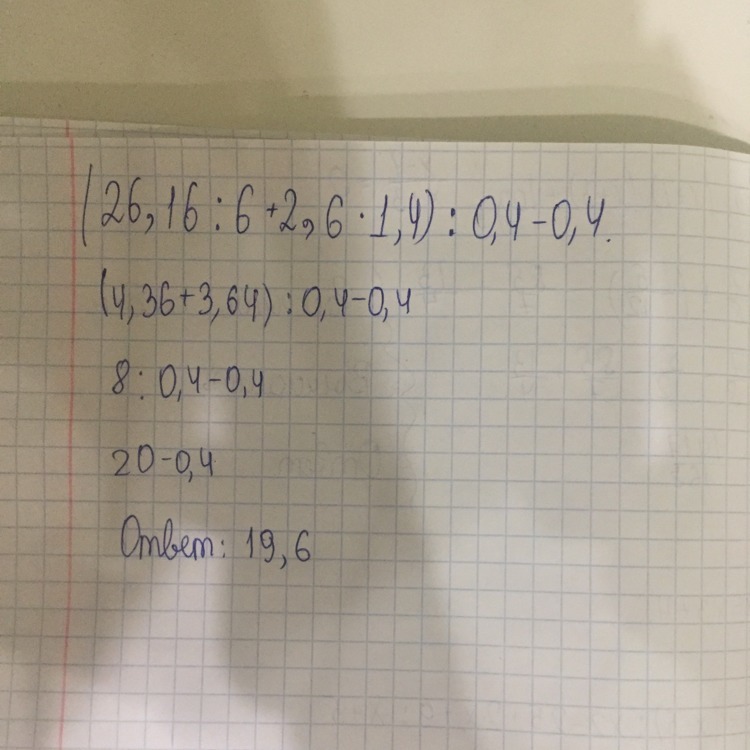 (26,16:6+2,6·1,4):0,4-0,4.
(4,36+3,64):0,4-0,4
8:0,4-0,4
20-0,4
Ответ: 19,6